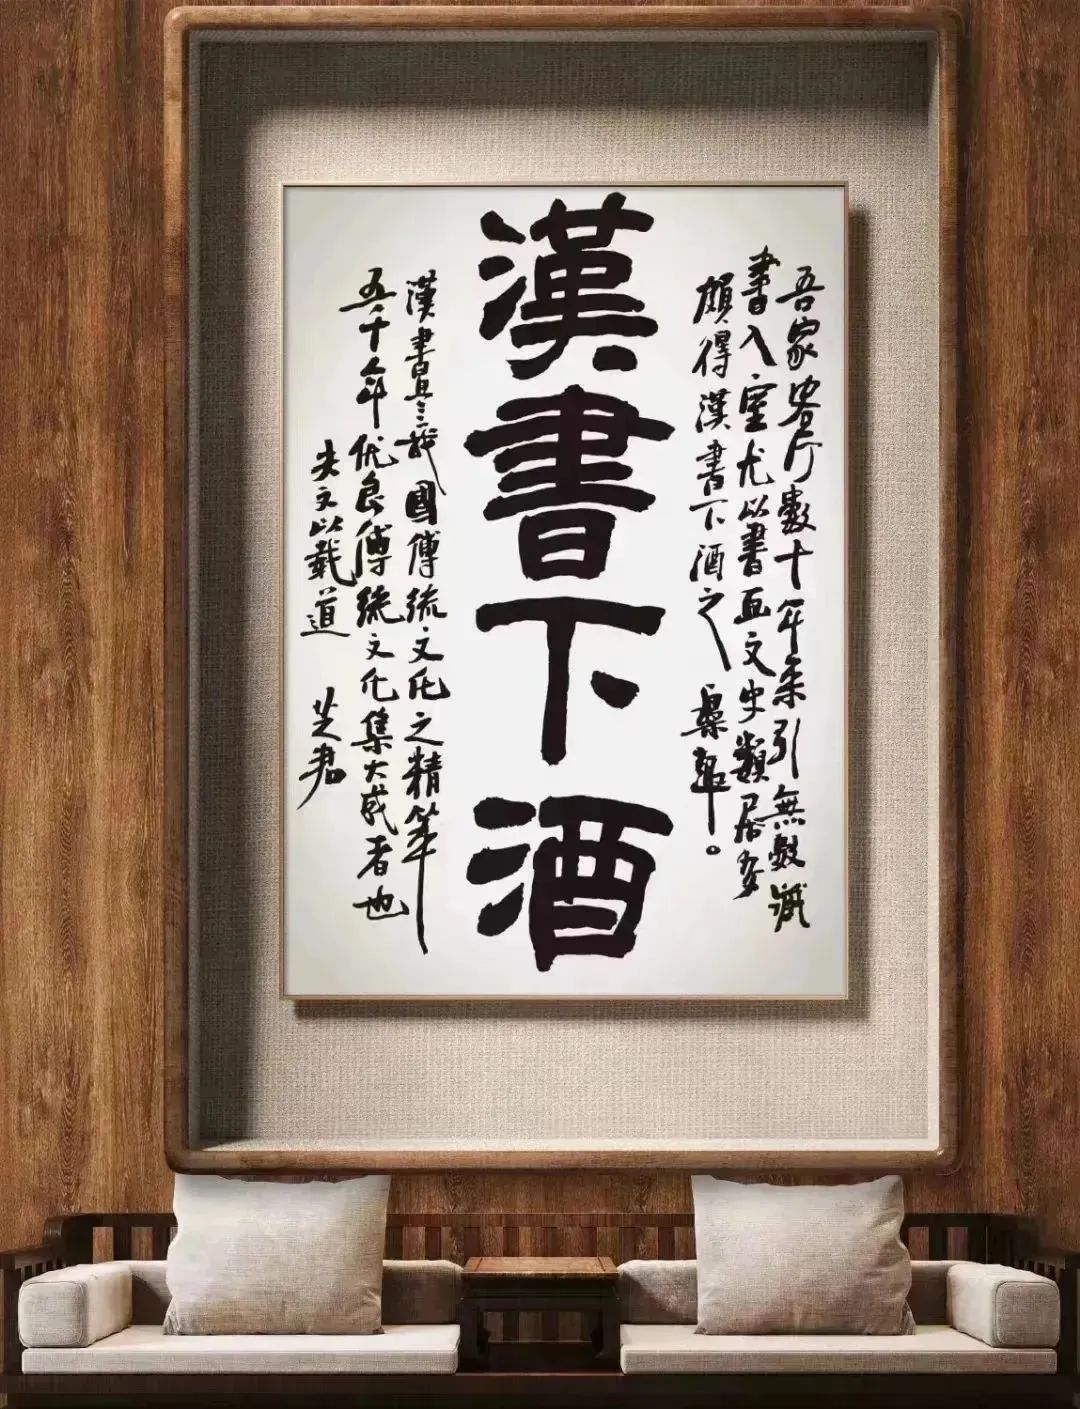 吾家客厅數十年来引無數藏
書入室尤以書画文史類居多
頗得漢書下酒之
漢書下酒
漢書是我國傳统文化之精华
五千年优良傳统文化集大成者也
夫文以载道
芝君